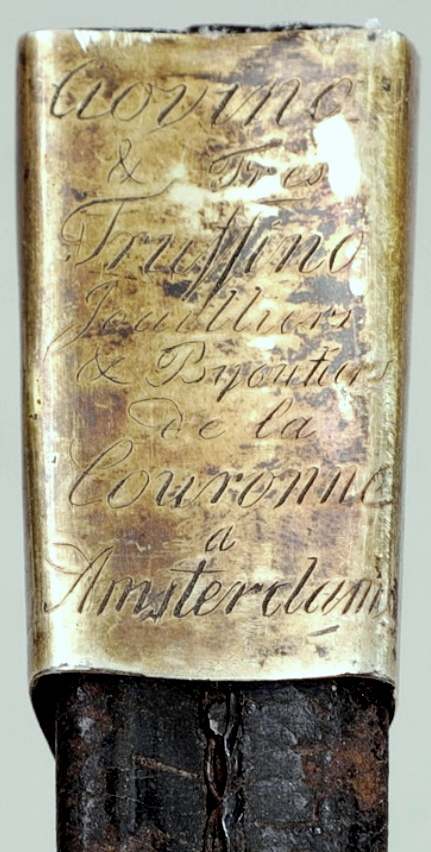 Govino
& Fres
Truffino
Jouilliers
& Byoutiers
de la
Couronne
a
Amsterdam